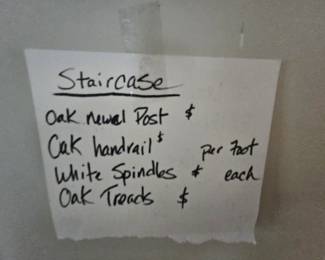 Staircase
Oak newel Post $
Oak handrail $ per Foot
White Spindles $ each
Oak Treads $